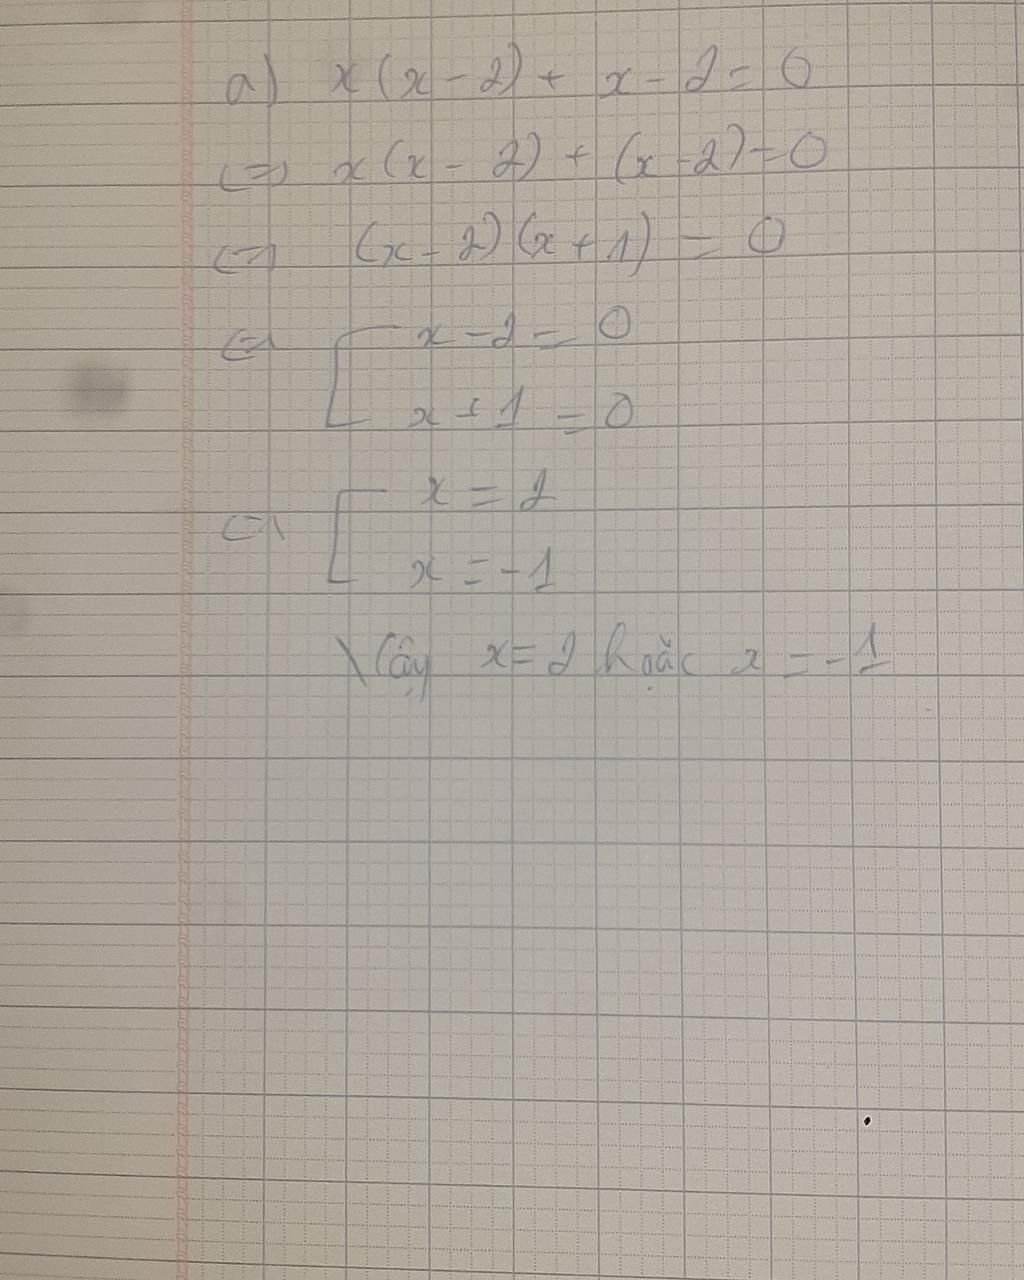 a) x(x-2) + x-2 = 0
<=> x(x-2) + (x-2) = 0
<=> (x-2)(x+1) = 0
<=> [ x-2 = 0
x+1 = 0
<=> [ x = 2
x = -1
Vậy x=2 hoặc x = -1